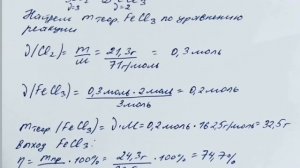 ν=3 ν=2
Найдем m теор. FeCl₃ по уравнению
реакции
ν(Cl₂) = m/M = 21,3г/71г/моль = 0,3 моль
ν(FeCl₃) = 0,3моль · 2моль/3моль = 0,2моль
m теор (FeCl₃) = ν·M = 0,2моль · 162,5г/моль = 32,5г
выход FeCl₃:
η = m пр./ · 100% = 24,3г/ · 100% = 74,7%